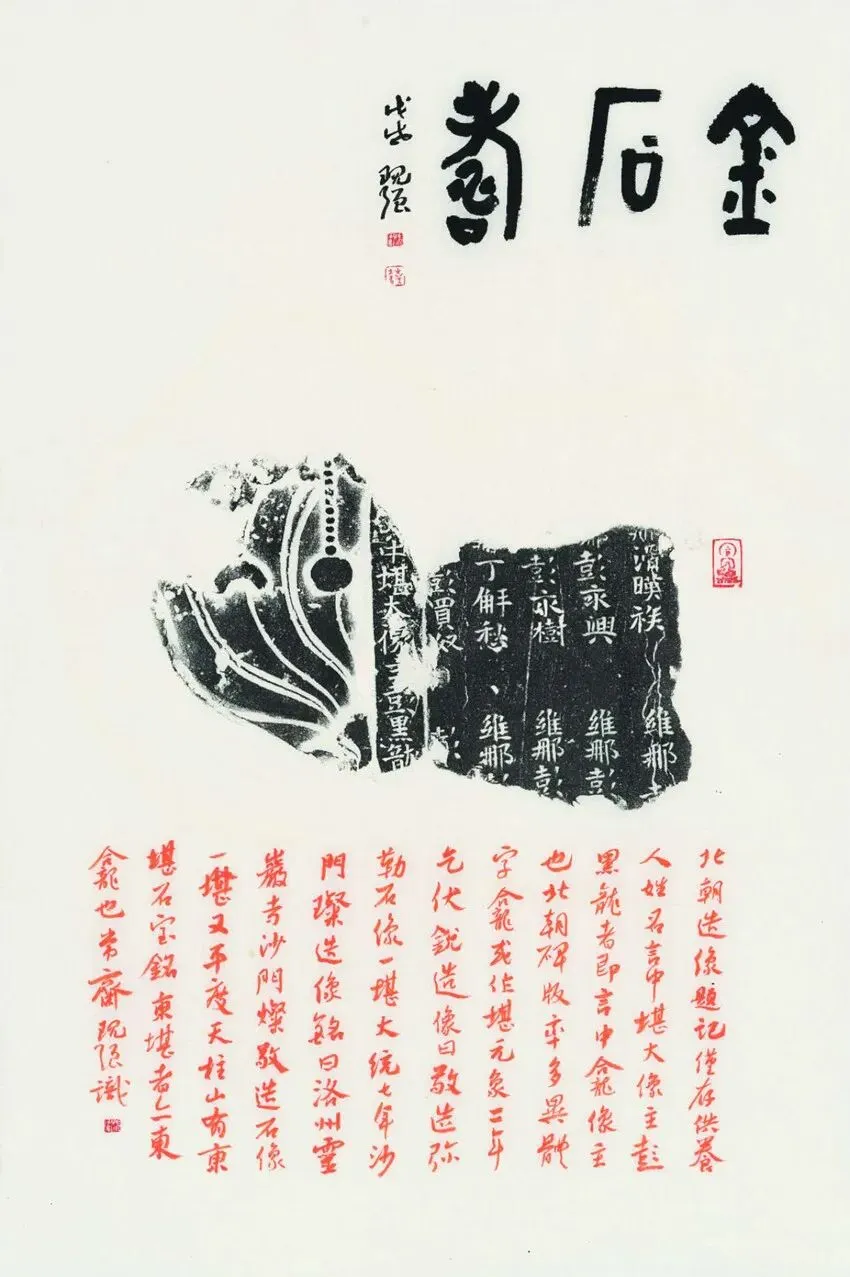 金石壽
戊戌
滑暎族 維那
彭永興 維那彭
彭永樹 維那彭
丁解愁 維那
彭買奴 彭
中堪大像主彭黑龍
北朝造像題記僅存供養
人姓名言中堪大像主彭
黑龍者即言中龕像主
也北朝碑版率多異體
字龕或作堪元象二年
乞伏銳造像曰敬造弥
勒石像一堪大統七年沙
門璨造像銘曰洛州靈
巖寺沙門燦敬造石像
一堪又平度天柱山有東
堪石室銘東堪者亦東
龕也 齋 識